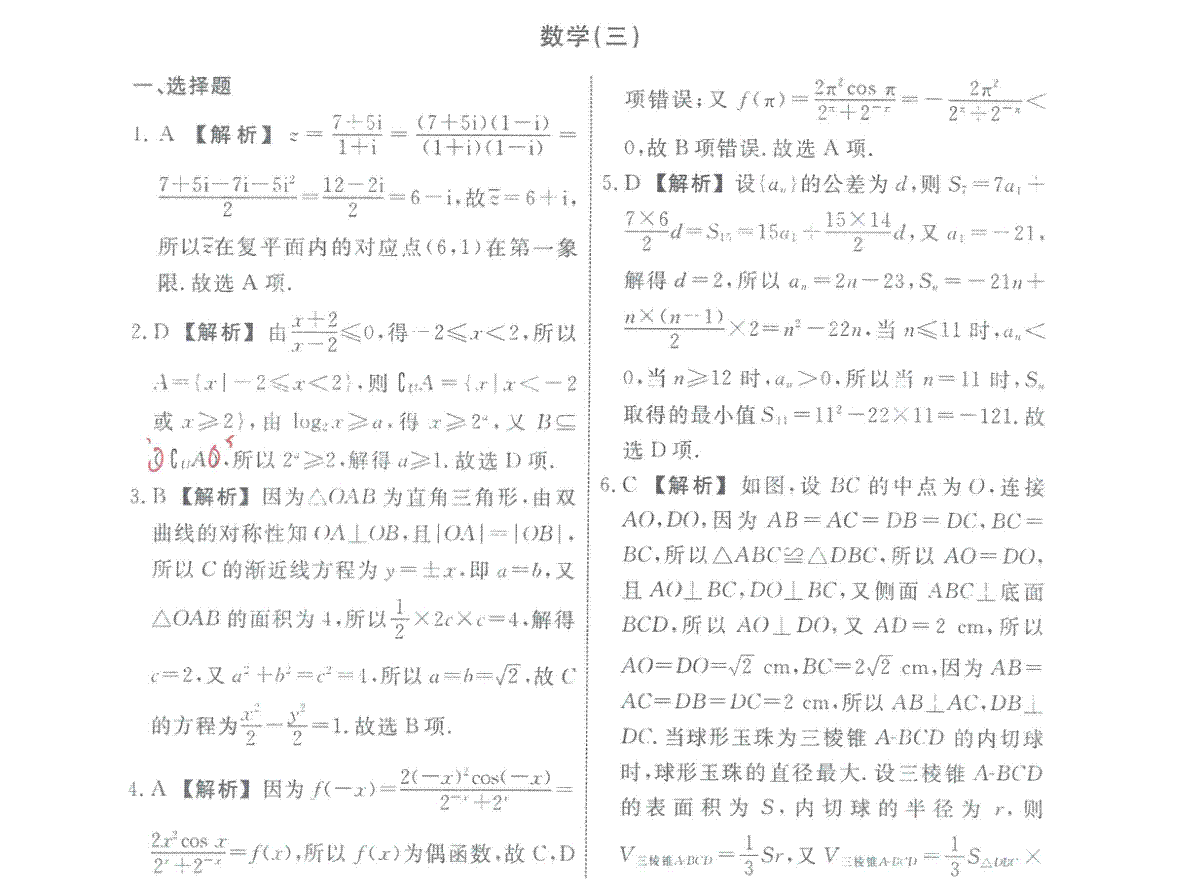 数学(三)
一、选择题
1. A 【解析】 z = \frac{7+5i}{1+i} = \frac{(7+5i)(1-i)}{(1+i)(1-i)} =
\frac{7+5i-7i-5i²}{2} = \frac{12-2i}{2} = 6-i,故\overline{z}=6+i,
所以\overline{z}在复平面内的对应点(6,1)在第一象
限.故选 A 项.
2. D 【解析】由\frac{x+2}{x-2}≤0,得-2≤x<2,所以
A={x|-2≤x<2},则∁_UA={x|x<-2
或 x≥2},由 log₂x≥a,得 x≥2^a,又 B⊆
∁_UA,所以 2^a≥2,解得 a≥1.故选 D 项.
3. B 【解析】因为△OAB 为直角三角形,由双
曲线的对称性知 OA⊥OB,且|OA|=|OB|,
所以 C 的渐近线方程为 y=±x,即 a=b,又
△OAB 的面积为 4,所以\frac{1}{2}×2c×c=4,解得
c=2,又 a²+b²=c²=4,所以 a=b=√2,故 C
的方程为\frac{x²}{2}-\frac{y²}{2}=1.故选 B 项.
4. A 【解析】因为 f(-x)=\frac{2(-x)²cos(-x)}{2^{-x}+2^x}=
\frac{2x²cos x}{2^x+2^{-x}}=f(x),所以 f(x)为偶函数,故 C,D
项错误;又 f(π)=\frac{2π²cos π}{2^π+2^{-π}}=-\frac{2π²}{2^π+2^{-π}}<
0,故 B 项错误.故选 A 项.
5. D 【解析】设{a_n}的公差为 d,则 S₇=7a₁+
\frac{7×6}{2}d=S₁₅=15a₁+\frac{15×14}{2}d,又 a₁=-21,
解得 d=2,所以 a_n=2n-23,S_n=-21n+
\frac{n×(n-1)}{2}×2=n²-22n,当 n≤11 时,a_n<
0,当 n≥12 时,a_n>0,所以当 n=11 时,S_n
取得的最小值 S₁₁=11²-22×11=-121.故
选 D 项.
6. C 【解析】如图,设 BC 的中点为 O,连接
AO,DO,因为 AB=AC=DB=DC,BC=
BC,所以△ABC≌△DBC,所以 AO=DO,
且 AO⊥BC,DO⊥BC,又侧面 ABC⊥底面
BCD,所以 AO⊥DO,又 AD=2 cm,所以
AO=DO=√2 cm,BC=2√2 cm,因为 AB=
AC=DB=DC=2 cm,所以 AB⊥AC,DB⊥
DC.当球形玉珠为三棱锥 A-BCD 的内切球
时,球形玉珠的直径最大.设三棱锥 A-BCD
的表面积为 S,内切球的半径为 r,则
V_{三棱锥A-BCD}=\frac{1}{3}Sr,又 V_{三棱锥A-BCD}=\frac{1}{3}S_{△DBC}×